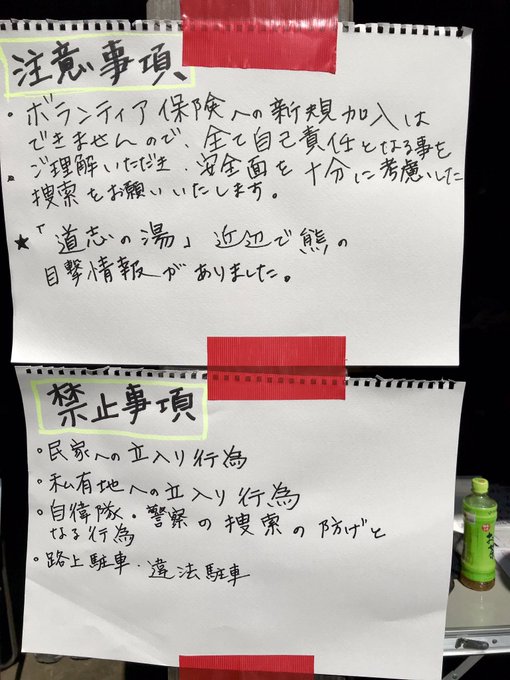 注意事項
・ボランティア保険への新規加入は
できませんので、全て自己責任となる事を
ご理解いただき、安全面を十分に考慮した
・捜索をお願いいたします。
★「道志の湯」近辺で熊の
目撃情報がありました。
禁止事項
・民家への立入り行為
・私有地への立入り行為
・自衛隊・警察の捜索の防げと
なる行為
・路上駐車・違法駐車